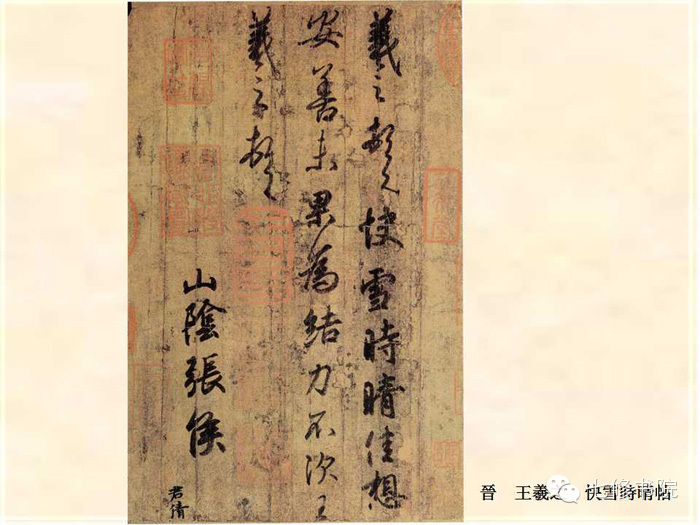 羲之頓首快雪時晴佳想
安善未果為結力不次王
羲之頓首
山陰張侯
君倩
晉 王羲之 快雪時晴帖
山修书院